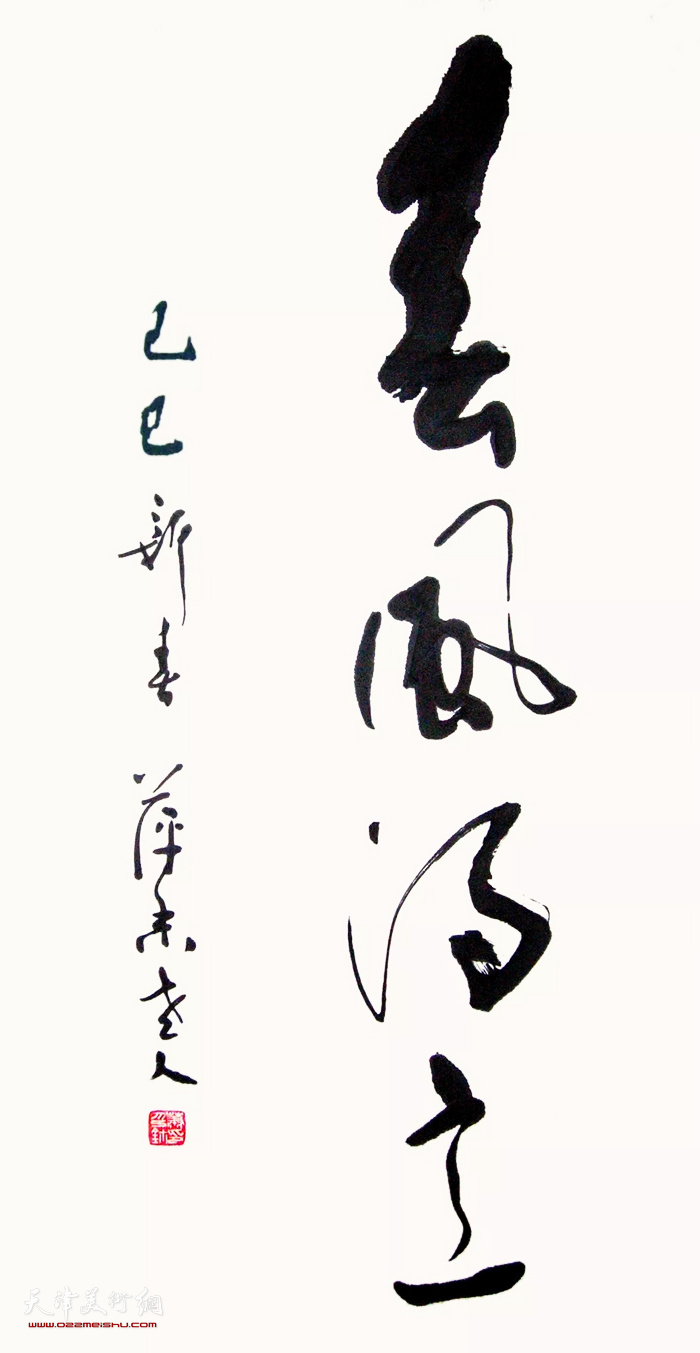 春風得意
己巳新春 萍香老人
天津美術網
www.022meishu.com